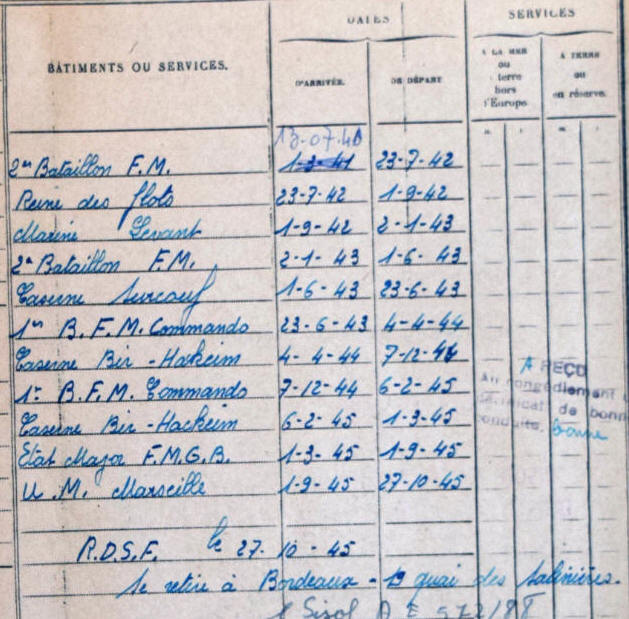 DATES SERVICES
BÂTIMENTS OU SERVICES. D'ARRIVÉE. DE DÉPART A LA MER ou à terre hors d'Europe. A TERRE ou en réserve.
13-07-40
2me Bataillon F.M. 1-3-41 23-7-42
Reine des flots 23-7-42 1-9-42
Marine Levant 1-9-42 2-1-43
2e Bataillon F.M. 2-1-43 1-6-43
Caserne Surcouf 1-6-43 23-6-43
1er B.F.M. Commando 23-6-43 4-4-44
Caserne Bir-Hakeim 4-4-44 7-12-44
1er B.F.M. Commando 7-12-44 6-2-45
Caserne Bir-Hackeim 6-2-45 1-3-45
Etat Major F.M.G.B. 1-3-45 1-9-45
U.M. Marseille 1-9-45 27-10-45
A REÇU
Au congédiement
certificat de bonne
conduite, bonne
R.D.S.F. le 27-10-45
Se retire à Bordeaux - 19 quai des Salinières.